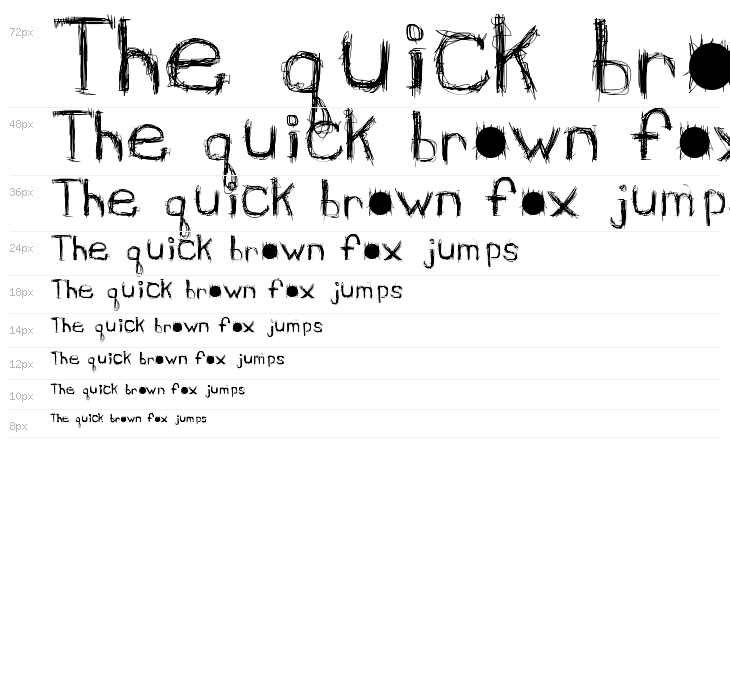 72px The quick bro
48px The quick brown fox
36px The quick brown fox jump
24px The quick brown fox jumps
18px The quick brown fox jumps
14px The quick brown fox jumps
12px The quick brown fox jumps
10px The quick brown fox jumps
8px The quick brown fox jumps